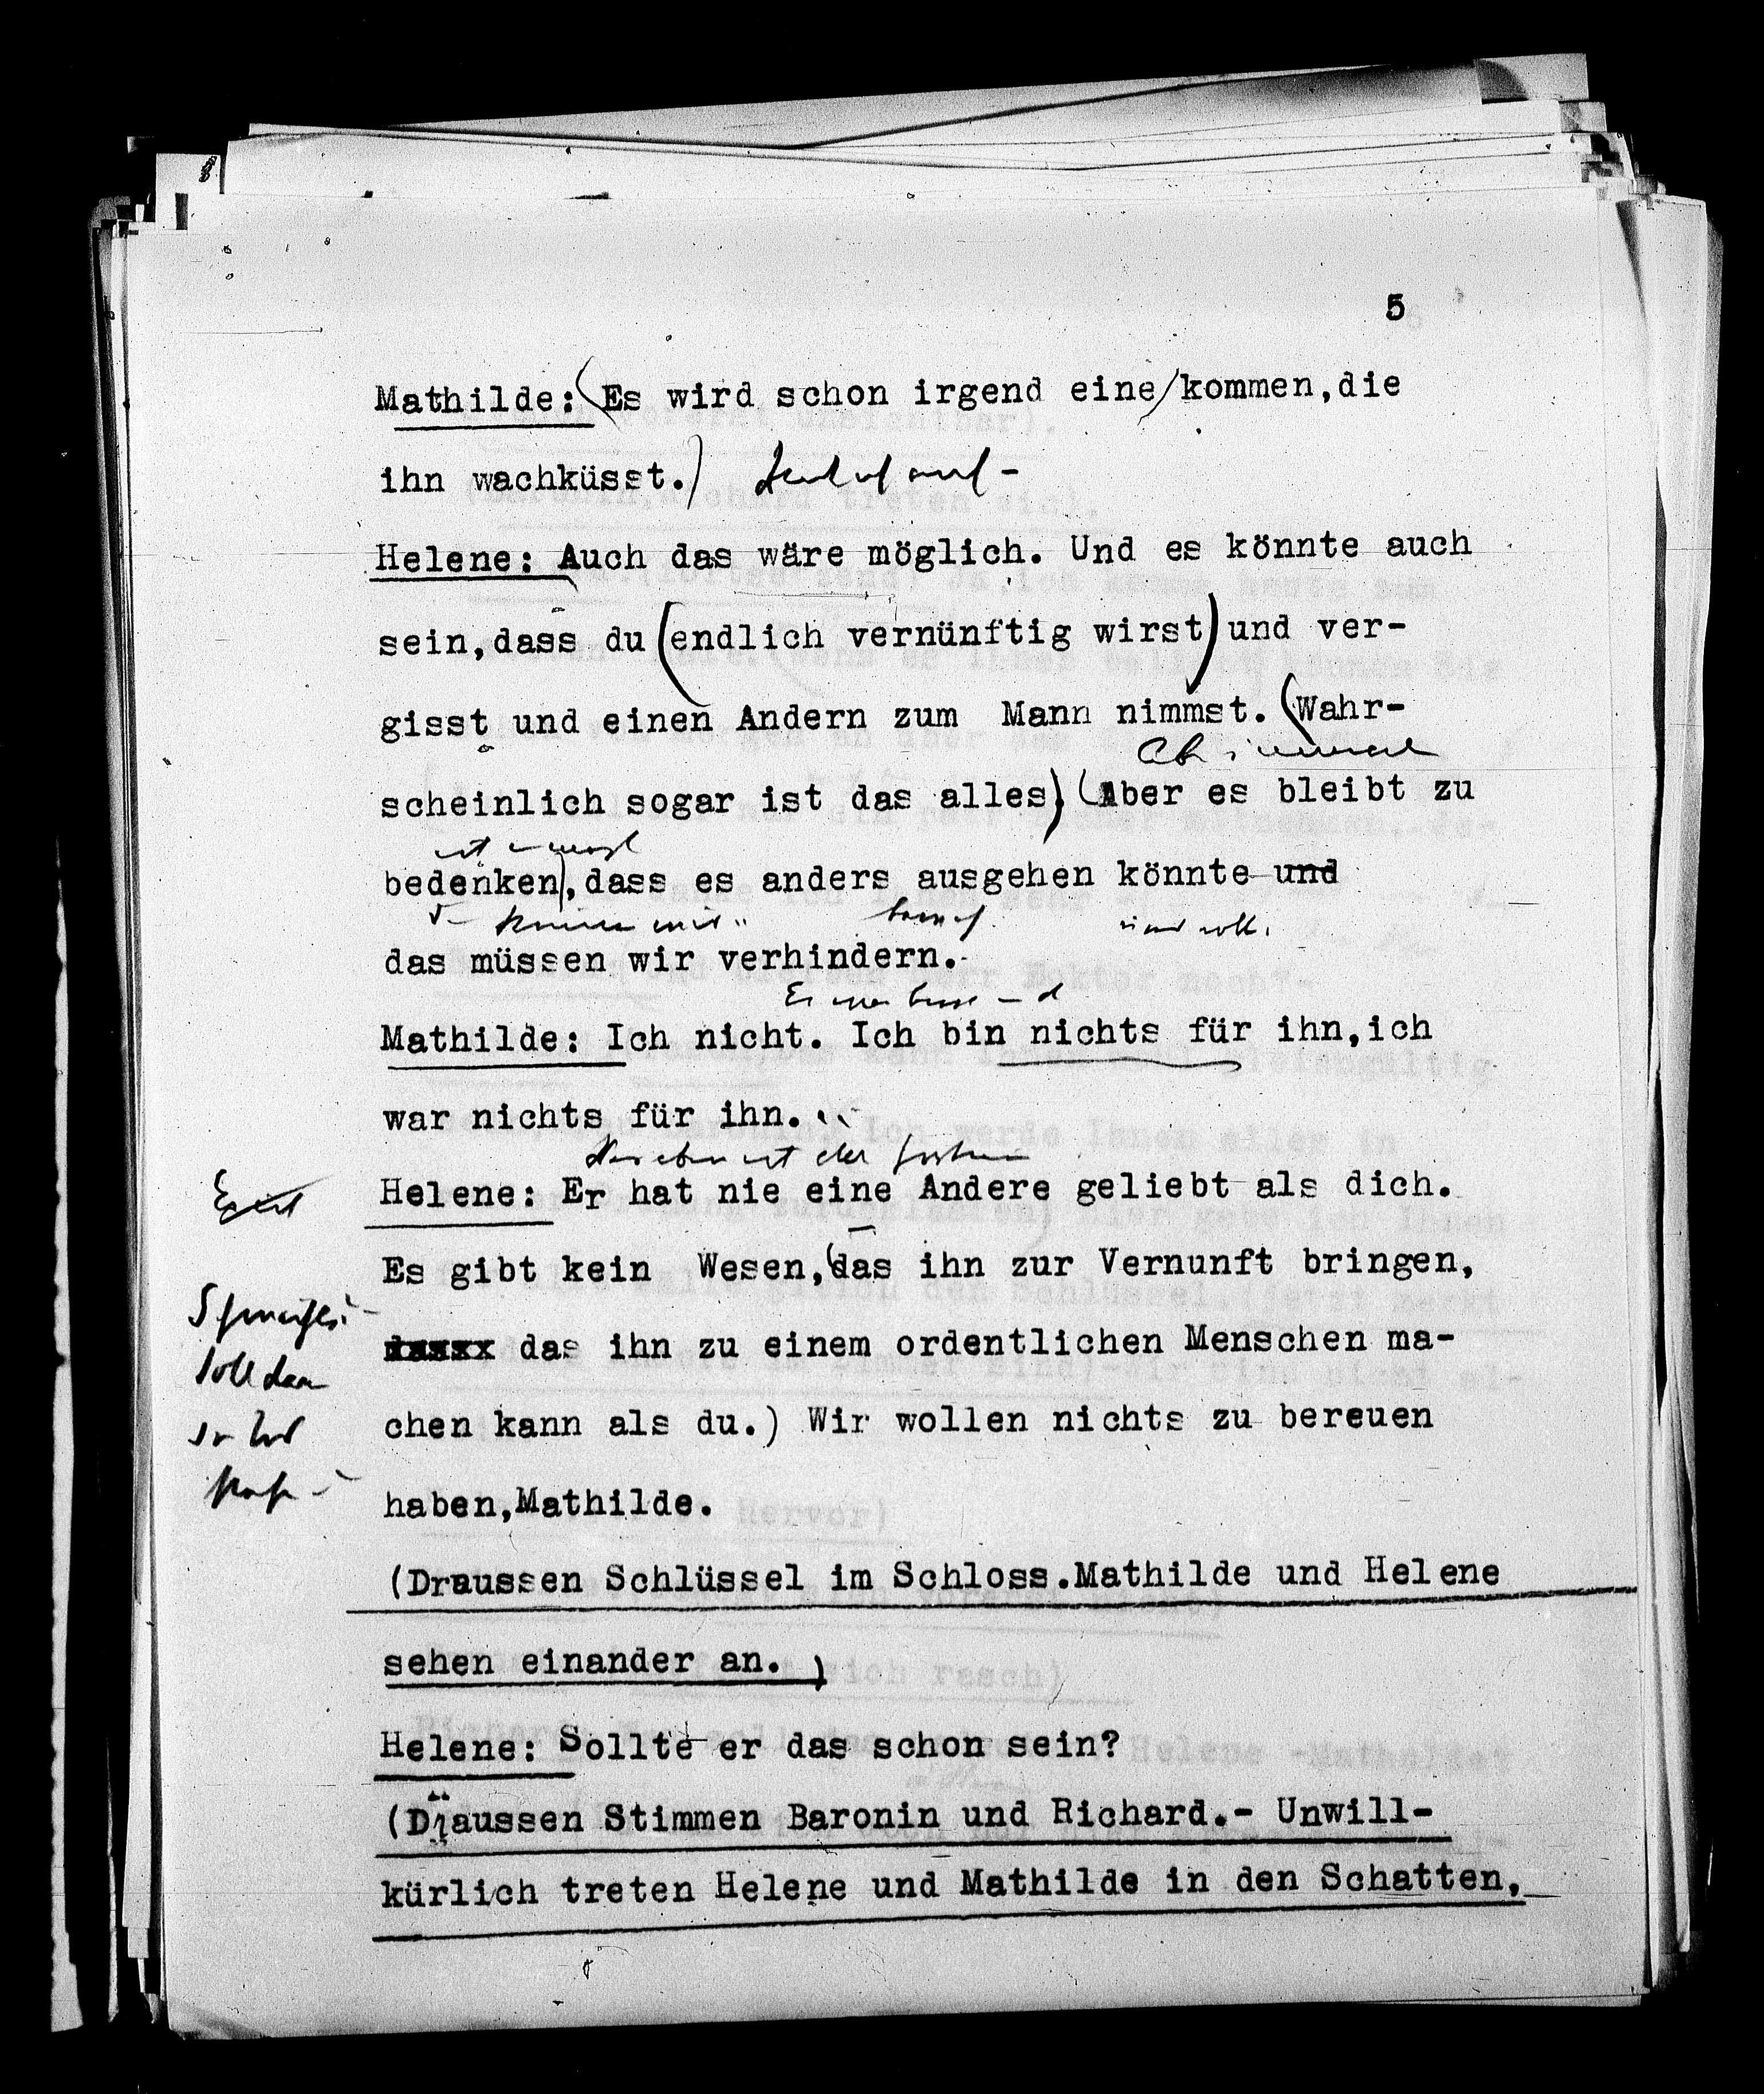 5
Mathilde: (Es wird schon irgend eine kommen,die
ihn wachküsst.)
Helene: Auch das wäre möglich. Und es könnte auch
sein,dass du (endlich vernünftig wirst) und ver-
gisst und einen Andern zum Mann nimmst. (Wahr-
scheinlich sogar ist das alles). (Aber es bleibt zu
bedenken), dass es anders ausgehen könnte und
das müssen wir verhindern.
Mathilde: Ich nicht. Ich bin nichts für ihn,ich
war nichts für ihn.
Helene: Er hat nie eine Andere geliebt als dich.
Es gibt kein Wesen,(das ihn zur Vernunft bringen,
das ihn zu einem ordentlichen Menschen ma-
chen kann als du.) Wir wollen nichts zu bereuen
haben,Mathilde.
(Draussen Schlüssel im Schloss.Mathilde und Helene
sehen einander an.)
Helene: Sollte er das schon sein?
(Draussen Stimmen Baronin und Richard.- Unwill-
kürlich treten Helene und Mathilde in den Schatten,